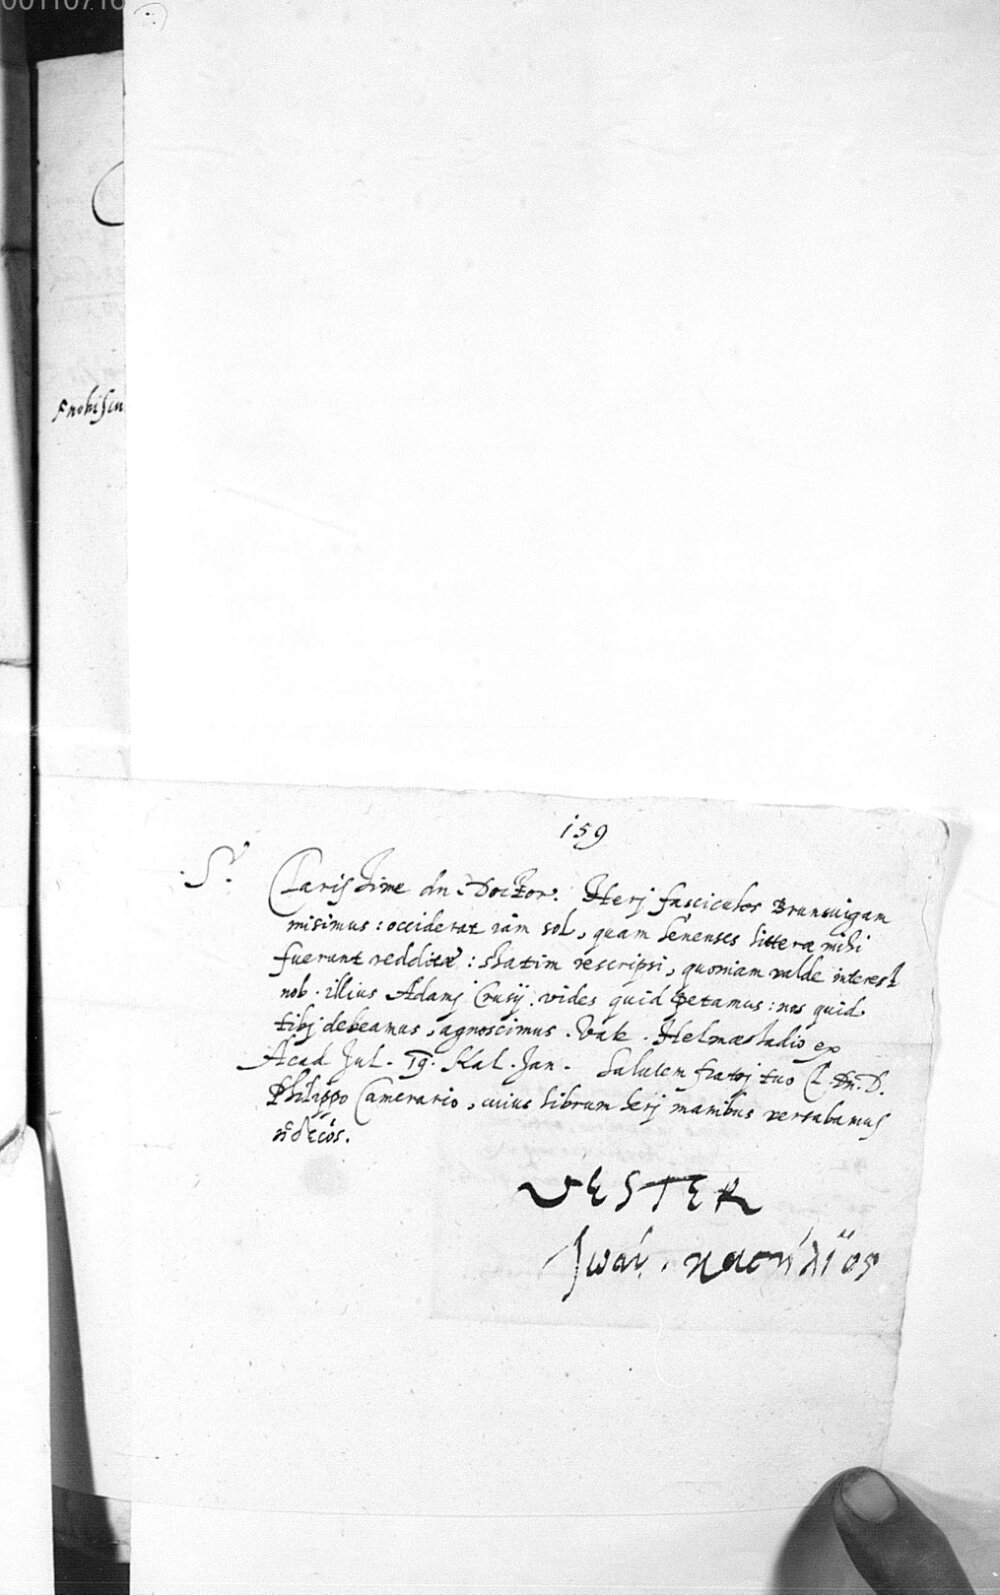 00110716
159
S.
Clarissime dn. Doctor. Herj fasciculos Brunsuigam
misimus: occiderat iam sol, quam Senenses litteræ mihi
fuerunt redditæ: statim rescripsi, quoniam valde interest
nob. illius Adamj Crusij. vides quid petamus: nos quid
tibj debeamus, agnoscimus. Vale. Helmæstadio ex
Acad Jul. 19. Kal. Jan. Salutem fratrj tuo Cl. Dn. D.
Philippo Camerario, cuius librum herj manibus versabamus
VESTER
Ἰωάν. κασήλϊος